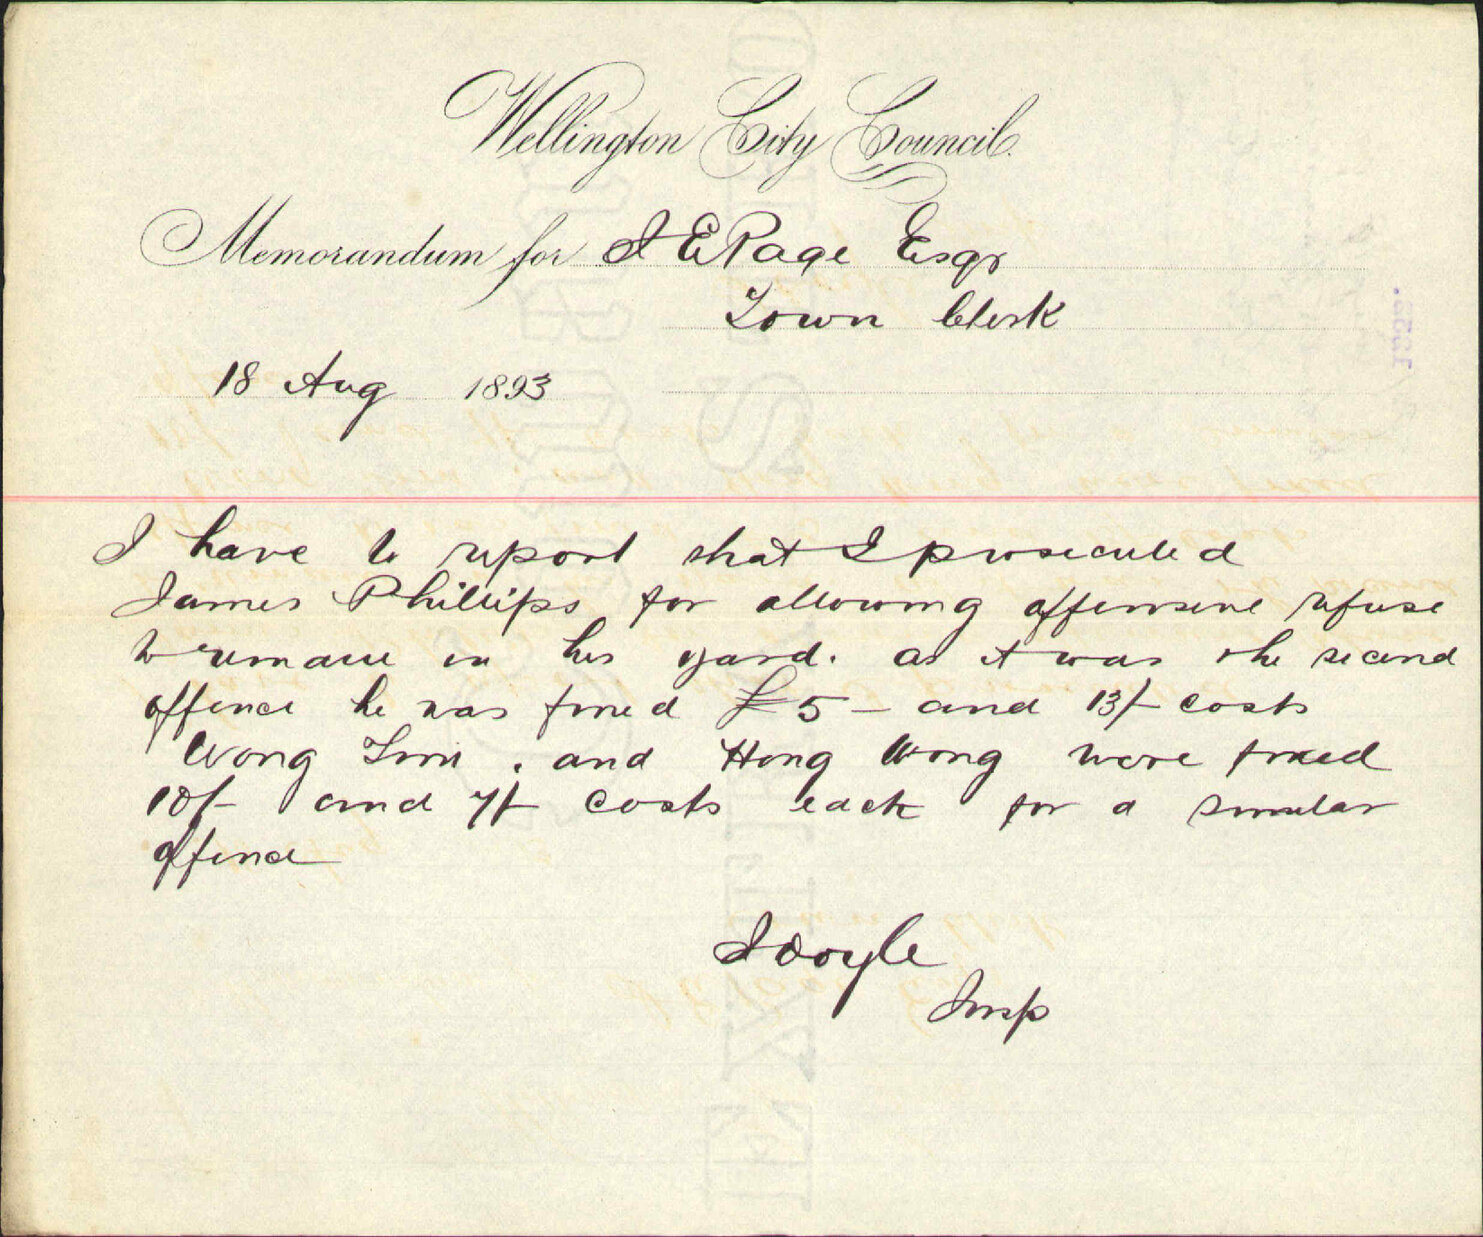 Wellington City Council.
Memorandum for J E Page Esqr
Town Clerk
18 Aug 1893
I have to report that I prosecuted
James Phillips for allowing offensive refuse
to remain in his yard. as it was the second
offence he was fined £5 – and 13/- costs
Wong . and Hong Wong were fined
10/- and 7/- costs each for a similar
offence
J Doyle
Insp